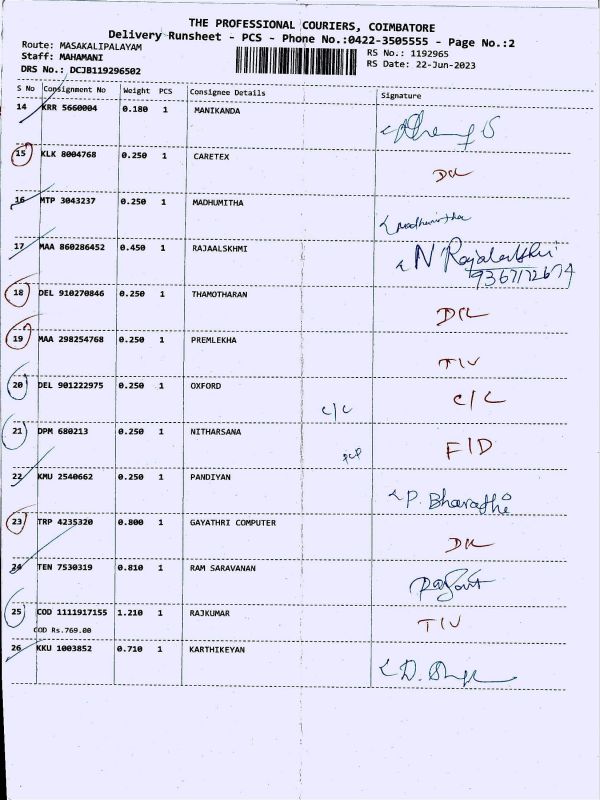 THE PROFESSIONAL COURIERS, COIMBATORE
Delivery Runsheet - PCS - Phone No.:0422-3505555 - Page No.:2
Route: MASAKALIPALAYAM
Staff: MAHAMANI
DRS No.: DCJB119296502
RS No.: 1192965
RS Date: 22-Jun-2023
S No Consignment No Weight PCS Consignee Details Signature
14 KRR 5660004 0.180 1 MANIKANDA
15 KLK 8004768 0.250 1 CARETEX
16 MTP 3043237 0.250 1 MADHUMITHA Madhumitha
17 MAA 860286452 0.450 1 RAJAALSKHMI N Rajalakshmi
9367172674
18 DEL 910270846 0.250 1 THAMOTHARAN
19 MAA 298254768 0.250 1 PREMLEKHA T/V
20 DEL 901222975 0.250 1 OXFORD C/C C/C
21 DPM 680213 0.250 1 NITHARSANA F/D
22 KMU 2540662 0.250 1 PANDIYAN P. Bharathi
23 TRP 4235320 0.800 1 GAYATHRI COMPUTER
24 TEN 7530319 0.810 1 RAM SARAVANAN
25 COD 1111917155 1.210 1 RAJKUMAR T/V
COD Rs.769.00
26 KKU 1003852 0.710 1 KARTHIKEYAN